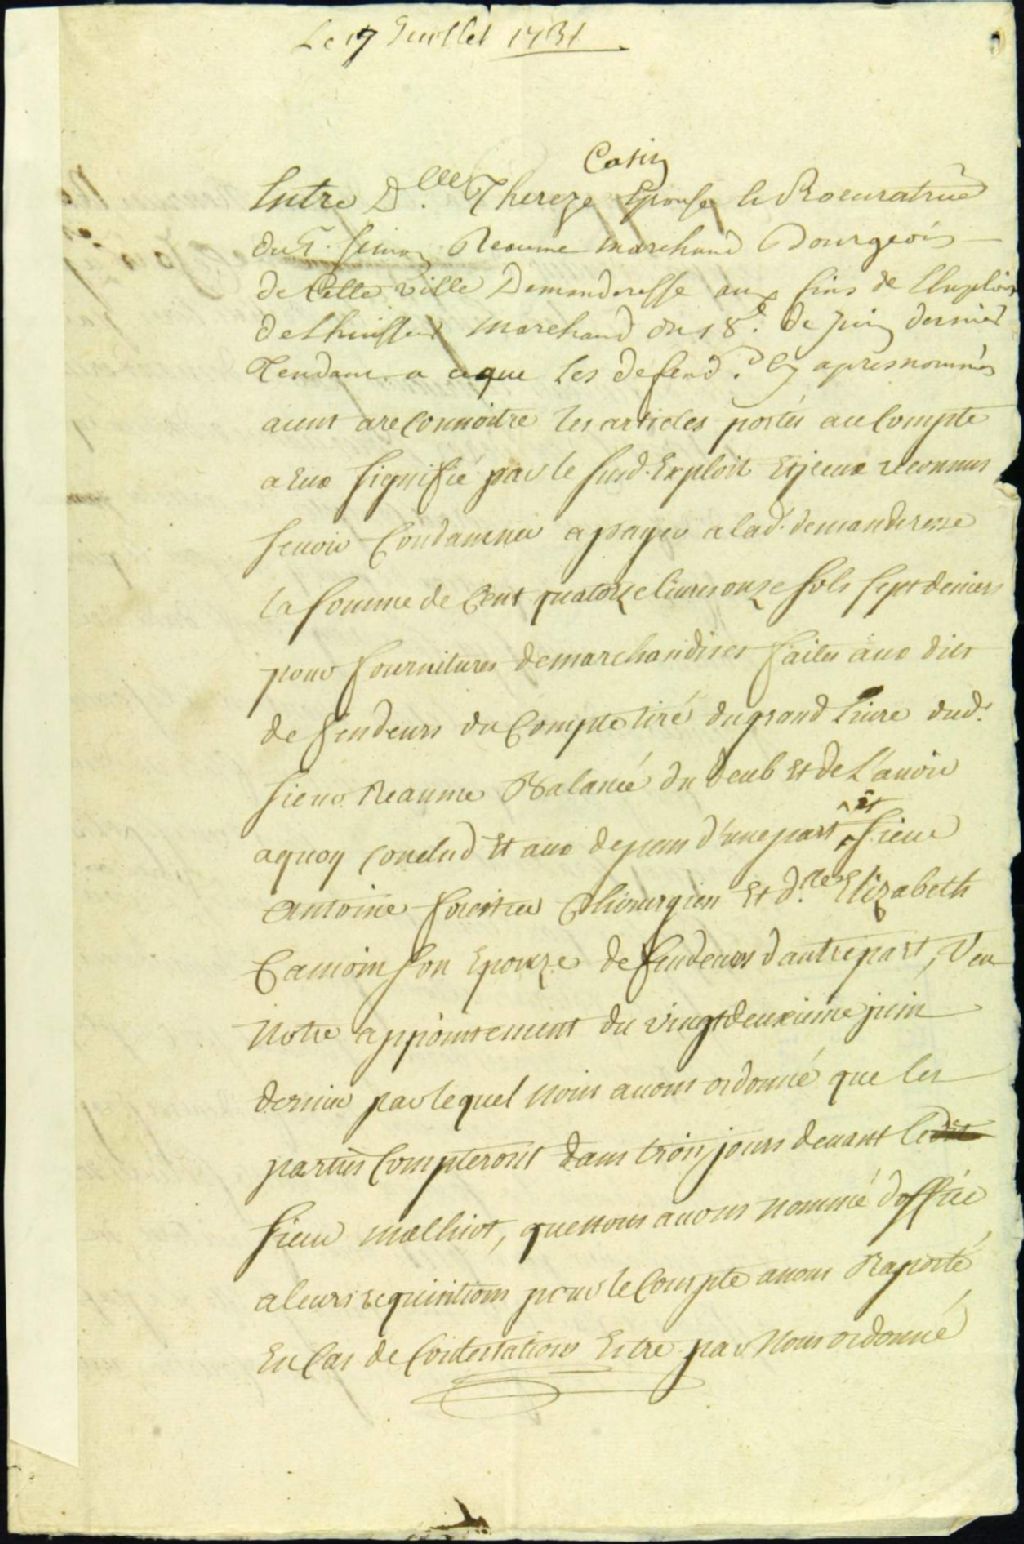 Le 17 Juillet 1731
Catin
Entre D.lle Thereze Epouse & Procuratrice
du S. Simon Reaume marchand Bourgeois
de Cette ville Demanderesse aux fins de l'Exploit
de Lhuissier Marchand du 18e. de Juin dernier
Tendant a ceque Les defend.rs Cy apres nommés
aient areConnoitre les articles portés au Compte
a Eux signifié par le susd. Exploit Et Iceux reconnus
se voir Condamner a payer a lad. demanderesse
la somme de Cent quatorze livres onze sols sept deniers
pour fournitures de marchandises faites aux dits
defendeurs du Compte tiré du grand Livre dud.
sieur Reaume Balancé du deub Et de L'avoir
aquoy conclud Et aux depens d'une part, Et sieur
Antoine forestier Chirurgien Et d.lle Elizabeth
Camoin son Epouze defendeurs d'autre part, Veu
Notre appointement du vingt deuxieme juin
dernier par lequel nous avons ordonné que les
parties Compteront dans trois jours devant le dit
sieur malhiot, que nous avons nommé d'office
a leurs requisitions pour le Compte a nous Raporté
En Cas de Contestations Estre par Nous ordonné